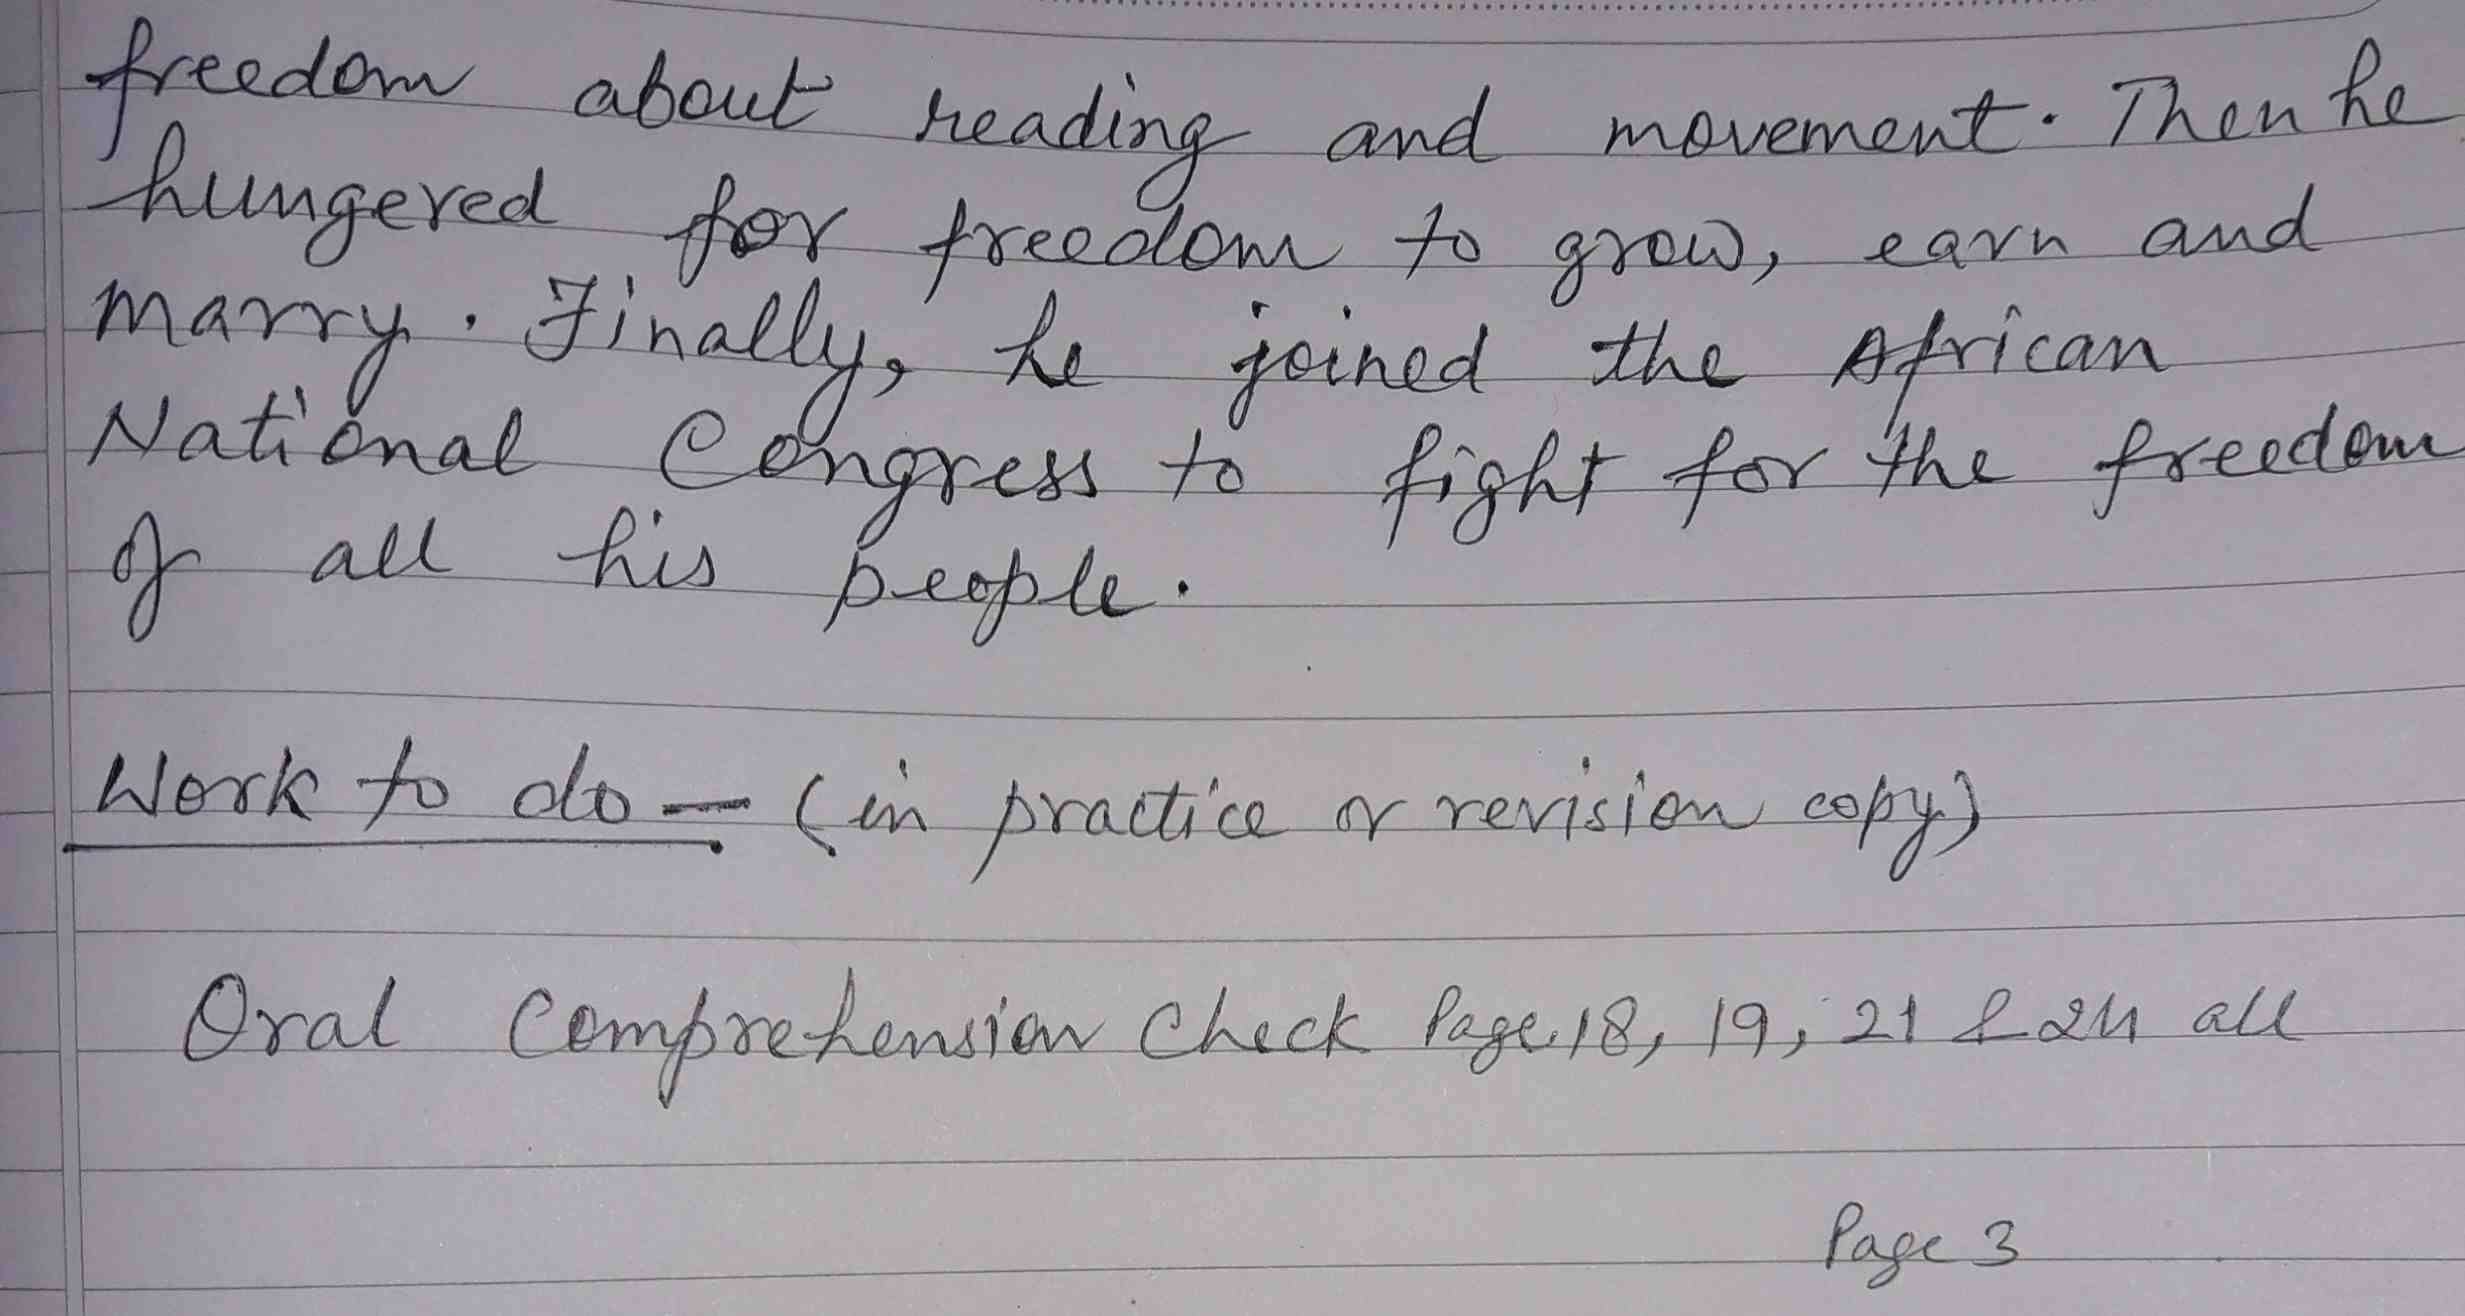 freedom about reading and movement. Then he
hungered for freedom to grow, earn and
marry. Finally, he joined the African
National Congress to fight for the freedom
of all his people.
Work to do – (in practice or revision copy)
Oral Comprehension Check Page 18, 19, 21 & 24 all
Page 3